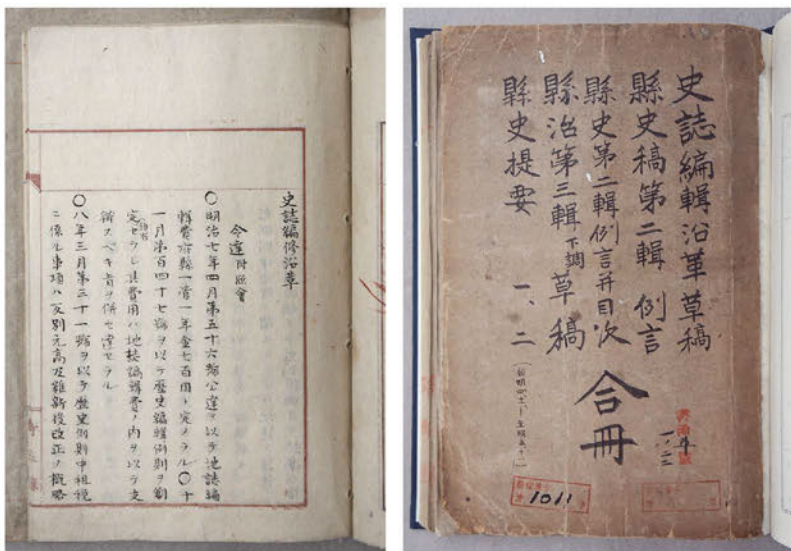 史誌編輯沿革草稿
縣史稿第二輯 例言
縣史第二輯例言并目次
縣治第三輯下調草稿
縣史提要 一、二
合冊
1011
史誌編修沿革
令達 附照會
〇明治七年四月第五十六號公達ヲ以テ地誌編
輯費府縣一管一年金七百圓ト定メラル〇十
一月第百四十七號ヲ以テ歴史編輯例則ヲ劃
定セラレ其費用ハ地誌編輯費ノ内ヲ以テ支
辨スヘキ旨ヲ併セ達セラル
〇八年三月第三十一號ヲ以テ歴史例則中租税
ニ係ル事項ハ反別元高及維新後改正ノ概略